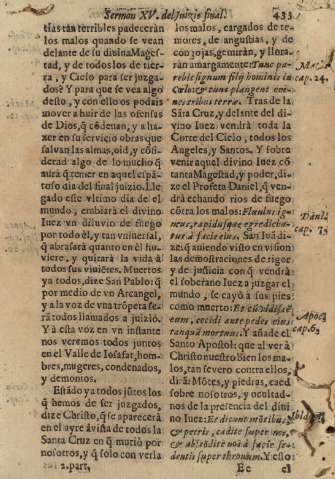 Sermon XV. del Juizio final. 433
tias tan terribles padecerán
los malos quando se vean
delante de su divina Mages-
tad, y de todos los de tier-
ra, y Cielo para ser juzga-
dos? Y para que se vea algo
desto, y con ello os podais
mover a huir de las ofensas
de Dios, q̃ cõdenan, y a ha-
zer en su servicio obras que
salvan las almas, oid, y cõsi-
derad algo de lo mucho q̃
aurà q̃ temer en aquel espã-
toso dia del final juizio. Lle-
gado este vltimo dia de el
mundo, embiarà el divino
Iuez vn diluvio de fuego
por todo èl, y tan vniversal,
q̃ abrasarà quanto en èl hu-
viere, y quitarà la vida à
todos sus viviẽtes. Muertos
ya todos, dize San Pablo: q̃
por medio de vn Arcangel,
y a la voz de vna trõpeta se-
rã todos llamados a juizio.
Y à esta voz en vn instante
nos veremos todos juntos
en el Valle de Iosafat, hom-
bres, mugeres, condenados,
y demonios.
Estãdo ya todos jũtos los
q̃ hemos de ser juzgados,
dize Christo, q̃ se aparecerà
en el ayre à vista de todos la
Santa Cruz en q̃ muriò por
nosotros, y q̃ solo con verla
2. part,
los malos, cargados de te-
mores, de angustias, y de
congojas, gemiràn, y llora-
ràn amargamente: Tunc pa-
rebit signum filij hominis in
Cœlo: & tunc plangent om-
nes tribus terræ. Tras de la
Sãta Cruz, y delante del di-
vino Iuez vendrà toda la
Corte del Cielo, todos los
Angeles, y Santos. Y sobre
venir aquel divino Iuez cõ
tanta Magestad, y poder, di-
ze el Profeta Daniel, q̃ ven-
drà echando rios de fuego
cõtra los malos: Fluvius ig-
neus, rapidusque egredieba-
tur à facie eius. San Iuã di-
ze: q̃ auiendo visto en vision
las demostraciones de rigor,
y de justicia con q̃ vendrà
el soberano Iuez a juzgar el
mundo, se cayò a sus pies
como muerto: Et cum vidissẽ
eum, cecidi ante pedes eius
tanquã mortuus. Y añade el
Santo Apostol: que al ver à
Christo nuestro Bien los ma-
los, tan severo contra ellos,
dirã: Mõtes, y piedras, caed
sobre nosotros, y ocultad-
nos de la presencia del divi-
no Iuez: Et dicunt mõtibus,
& petris, cadite super nos,
& abscõdite nos à facie se-
dentis super thronum. Y esso
Ee el
cap. 24.
Daniel.
cap. 7.
Apoc.
cap. 6.